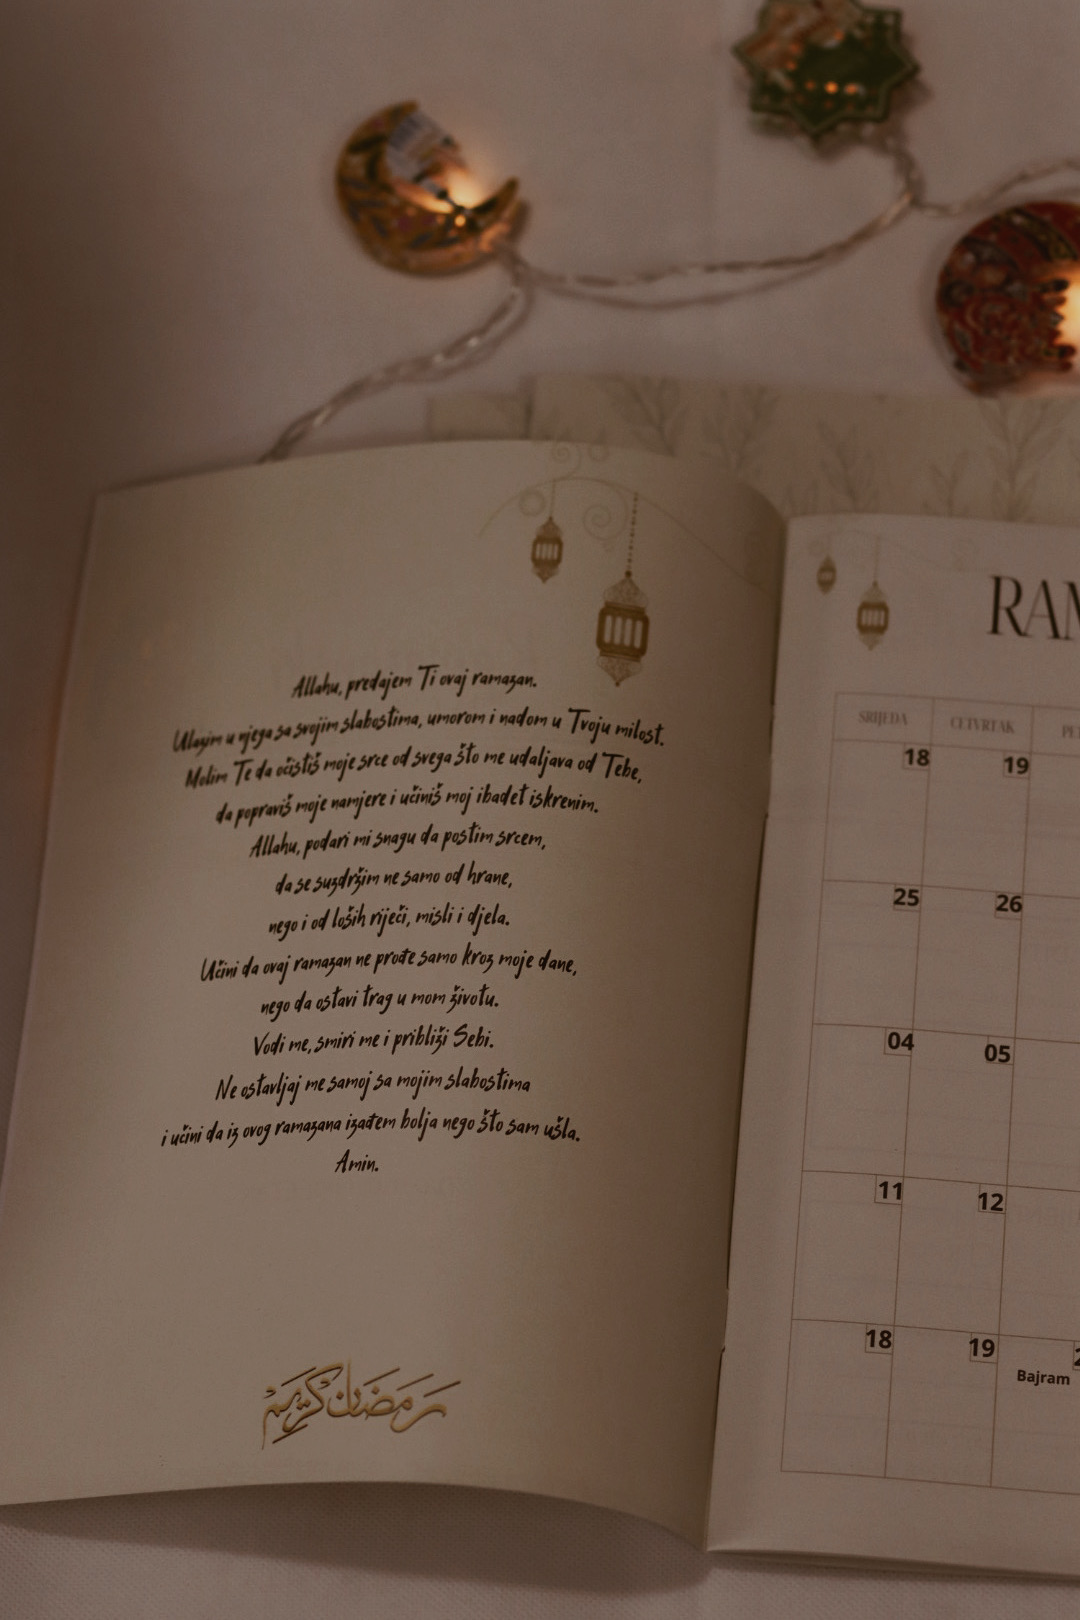 Allahu, predajem Ti ovaj ramazan.
Ulazim u njega sa svojim slabostima, umorom i nadom u Tvoju milost.
Molim Te da očistiš moje srce od svega što me udaljava od Tebe,
da popraviš moje namjere i učiniš moj ibadet iskrenim.
Allahu, podari mi snagu da postim srcem,
da se suzdržim ne samo od hrane,
nego i od loših riječi, misli i djela.
Učini da ovaj ramazan ne prođe samo kroz moje dane,
nego da ostavi trag u mom životu.
Vodi me, smiri me i približi Sebi.
Ne ostavljaj me samoj sa mojim slabostima
i učini da iz ovog ramazana izađem bolja nego što sam ušla.
Amin.
رمضان كريم
RAM
SRIJEDA ČETVRTAK PE
18 19
25 26
04 05
11 12
18 19 2
Bajram